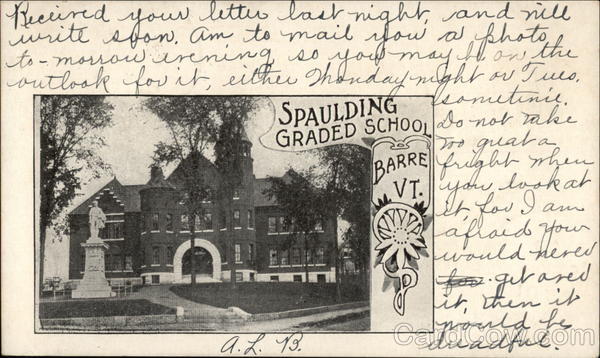 Received your letter last night, and will
write soon. Am to mail you a photo
to-morrow evening so you may be on the
outlook for it, either Monday night or Tues.
sometime.
Do not take
too great a
fright when
you look at
it, for I am
afraid you
would never
get over
it, then it
would be
dreadful.
SPAULDING
GRADED SCHOOL
BARRE
VT.
A. L. B.
CardCow.com